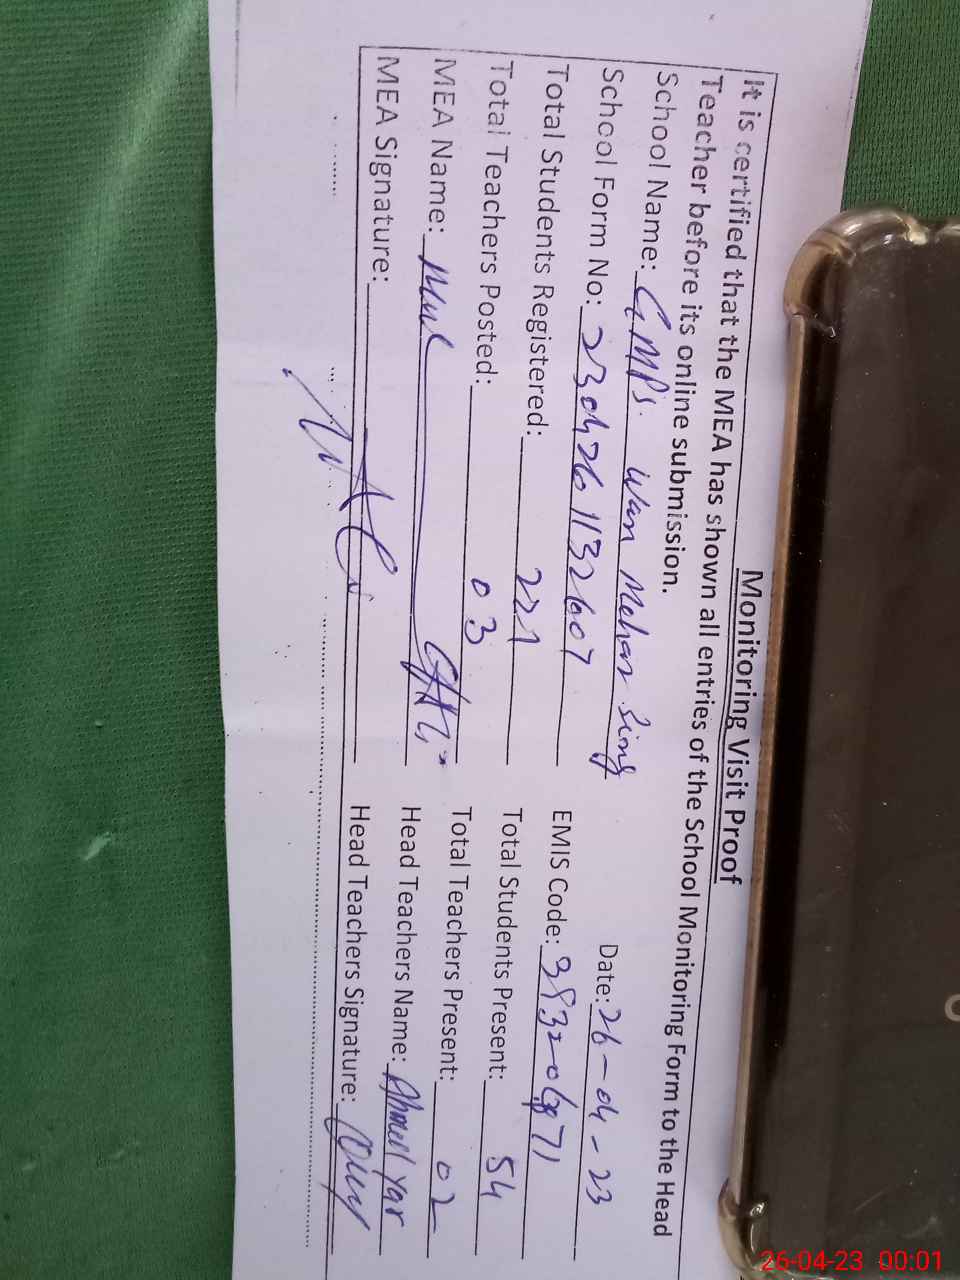 Monitoring Visit Proof
It is certified that the MEA has shown all entries of the School Monitoring Form to the Head
Teacher before its online submission.
Date: 26-04-23
School Name: GMPS Wan Mehar Sing
School Form No: 2304261132607 EMIS Code:
Total Students Registered: 221 Total Students Present: 54
Total Teachers Posted: 03 Total Teachers Present: 02
MEA Name: Head Teachers Name: Ahmed Yar
MEA Signature: Head Teachers Signature:
26-04-23 00:01